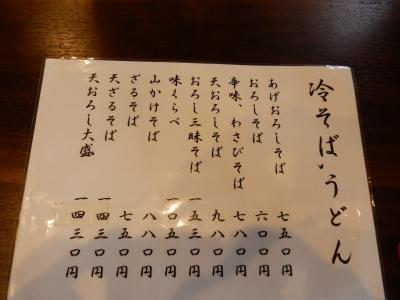 冷そば、うどん
あげおろしそば 七五〇円
おろしそば 六〇〇円
辛味、わさびそば 七八〇円
天おろしそば 九八〇円
おろし三味そば 一五三〇円
味くらべ 一〇五〇円
山かけそば 八八〇円
ざるそば 七五〇円
天ざるそば 一四三〇円
天おろし大盛 一四三〇円